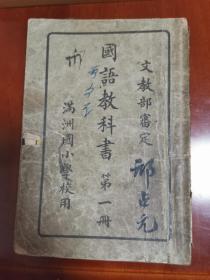 文教部審定
國語教科書 第一冊
滿洲國小學校用